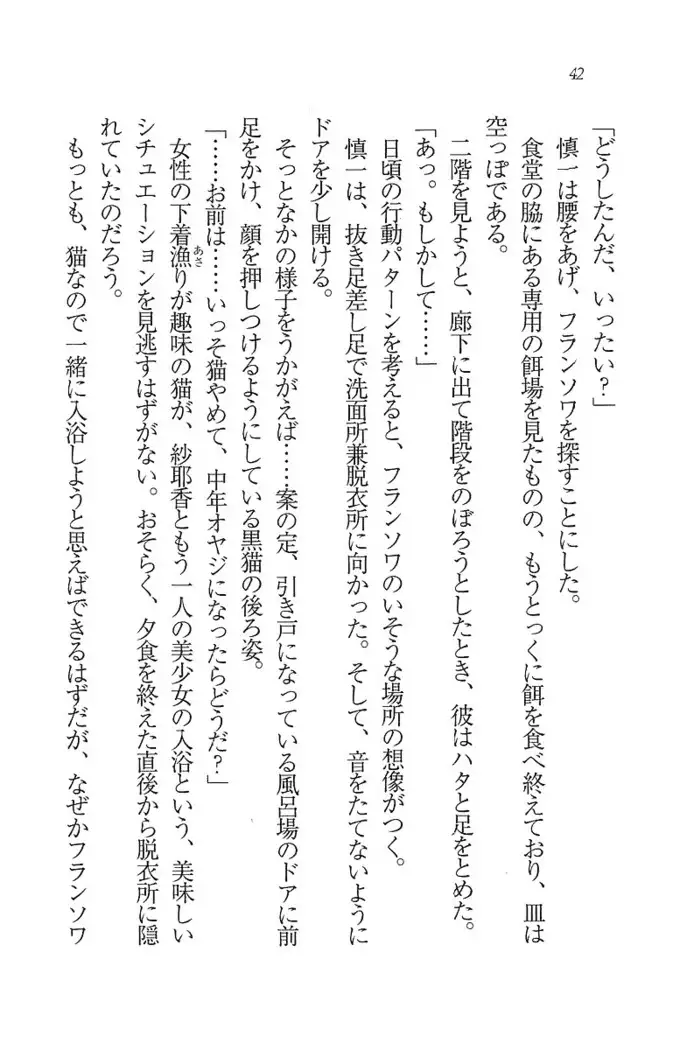 42
「どうしたんだ、いったい?」
慎一は腰をあげ、フランソワを探すことにした。
食堂の脇にある専用の餌場を見たものの、もうとっくに餌を食べ終えており、皿は
空っぽである。
二階を見ようと、廊下に出て階段をのぼろうとしたとき、彼はハタと足をとめた。
「あっ。もしかして……」
日頃の行動パターンを考えると、フランソワのいそうな場所の想像がつく。
慎一は、抜き足差し足で洗面所兼脱衣所に向かった。そして、音をたてないように
ドアを少し開ける。
そっとなかの様子をうかがえば……案の定、引き戸になっている風呂場のドアに前
足をかけ、顔を押しつけるようにしている黒猫の後ろ姿。
「……お前は……いっそ猫やめて、中年オヤジになったらどうだ?」
女性の下着漁りが趣味の猫が、紗耶香ともう一人の美少女の入浴という、美味しい
あさ
シチュエーションを見逃すはずがない。おそらく、夕食を終えた直後から脱衣所に隠
れていたのだろう。
もっとも、猫なので一緒に入浴しようと思えばできるはずだが、なぜかフランソワ